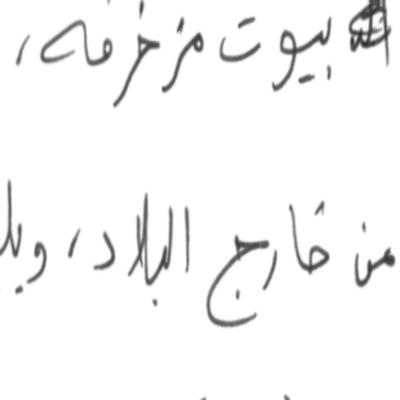 بيوت مزخرفه،
من خارج البلاد، وبلـ